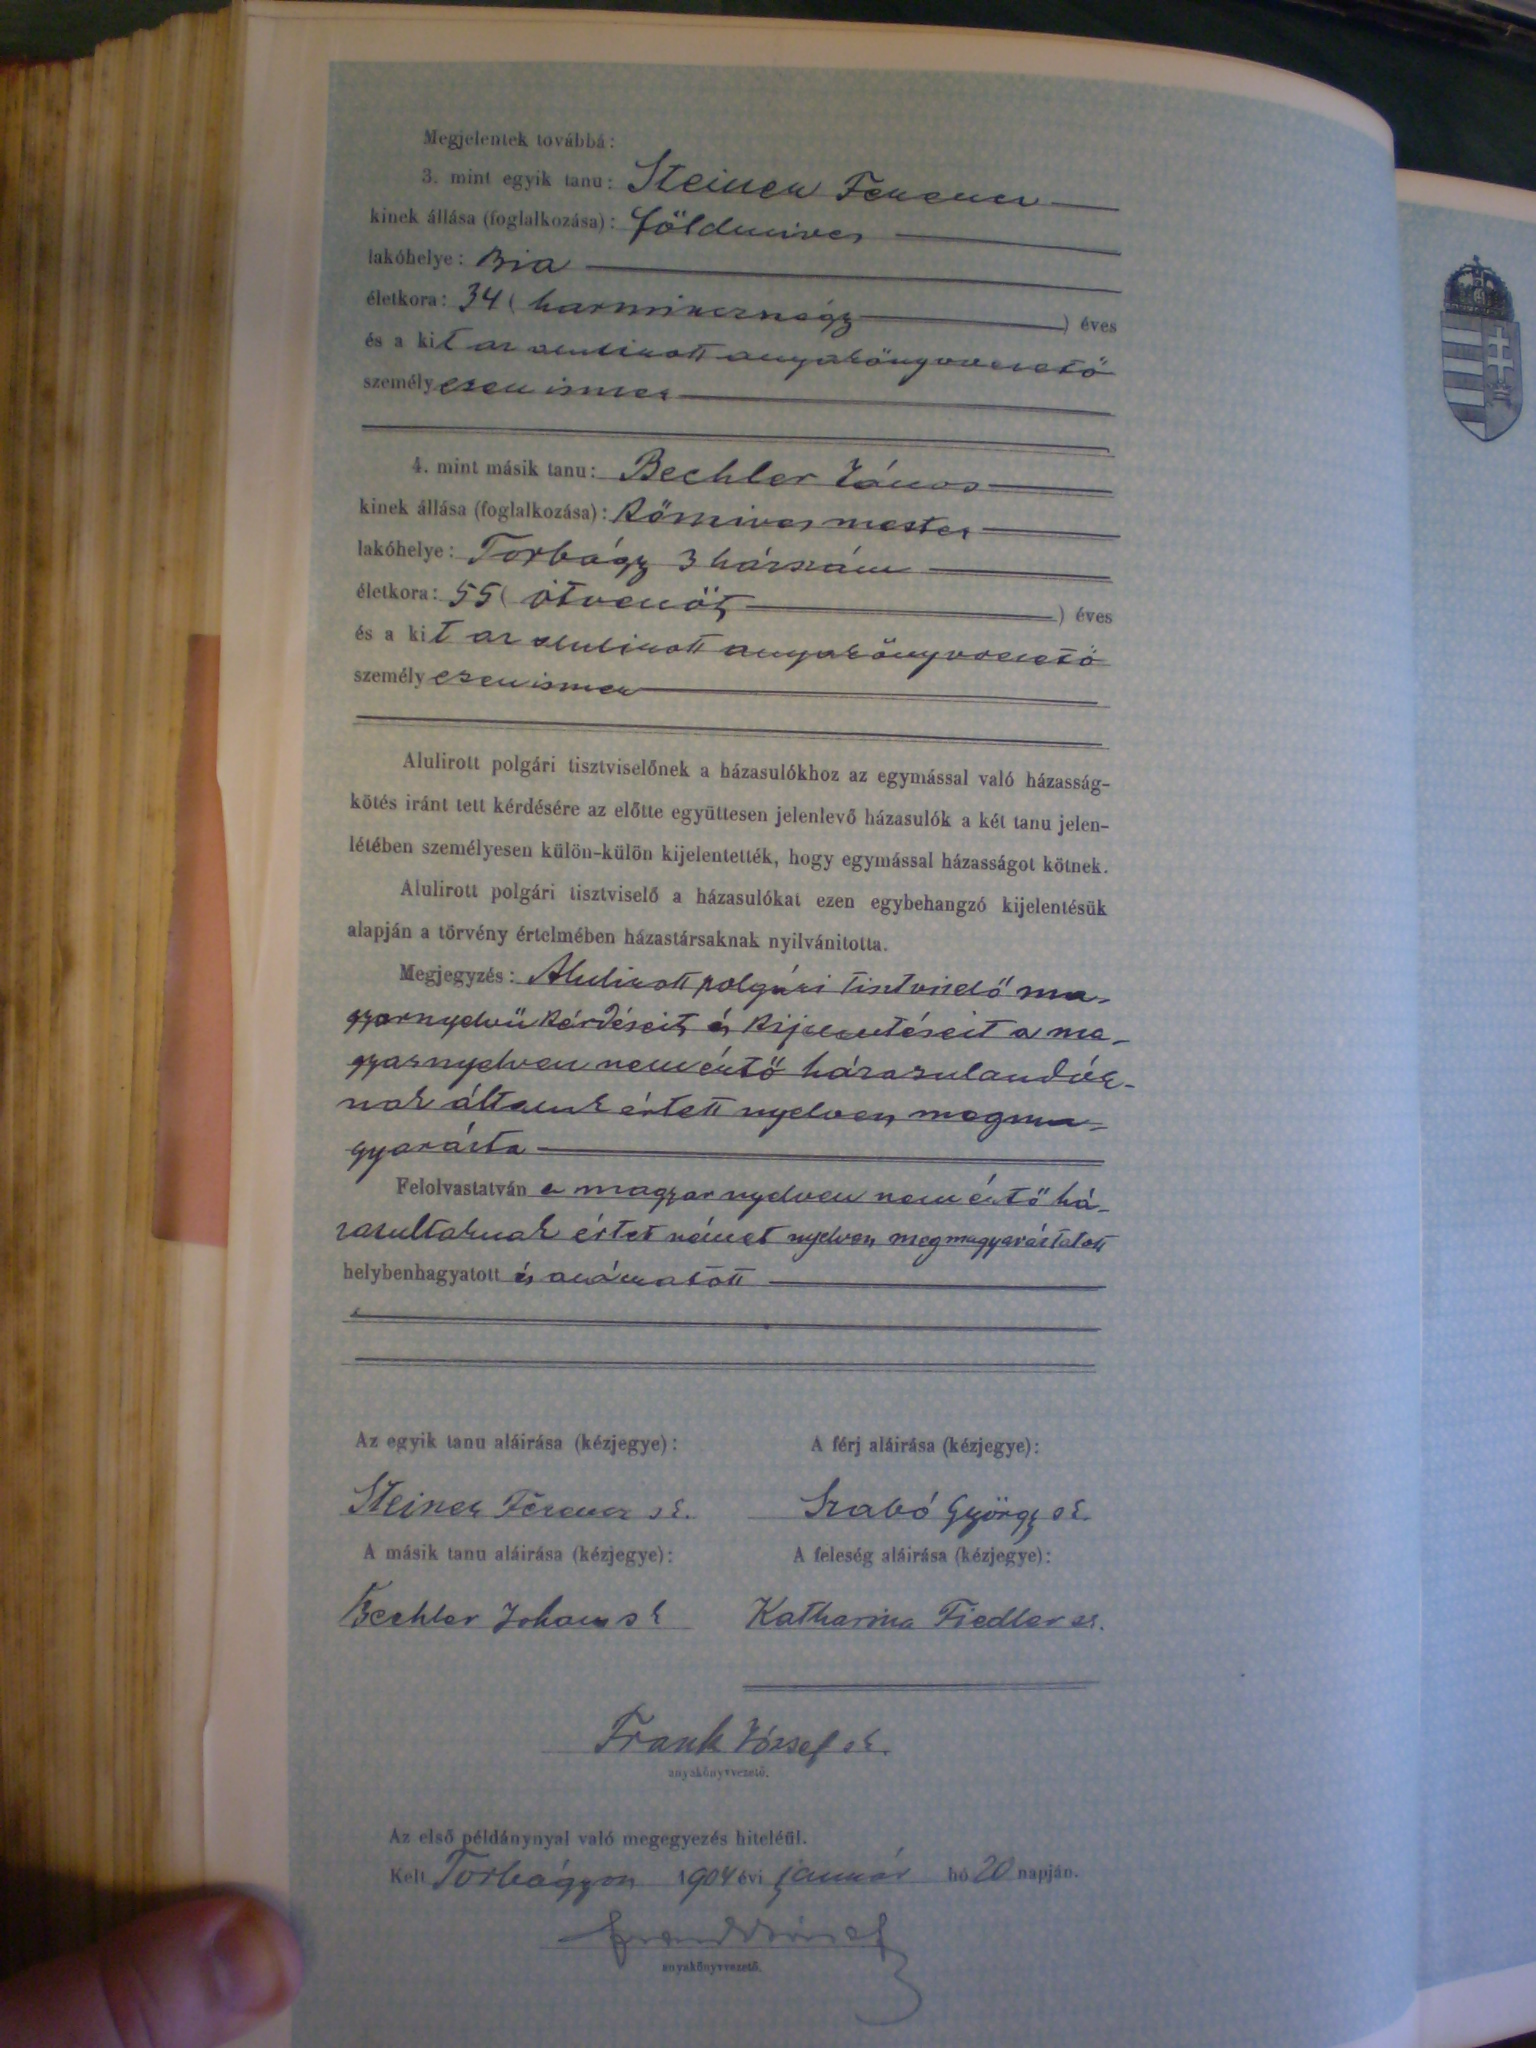 Megjelentek továbbá:
3. mint egyik tanu: Steiner Ferencz
kinek állása (foglalkozása): földmives
lakóhelye: Bia
életkora: 34 (harmincznégy) éves
és a kit az alulirott anyakönyvvezető
személyesen ismer
4. mint másik tanu: Bechler János
kinek állása (foglalkozása): Kőmives mester
lakóhelye: Torbágy 3 házszám
életkora: 55 (ötvenöt) éves
és a kit az alulirott anyakönyvvezető
személyesen ismer
Alulirott polgári tisztviselőnek a házasulókhoz az egymással való házasság-
kötés iránt tett kérdésére az előtte együttesen jelenlevő házasulók a két tanu jelen-
létében személyesen külön-külön kijelentették, hogy egymással házasságot kötnek.
Alulirott polgári tisztviselő a házasulókat ezen egybehangzó kijelentésük
alapján a törvény értelmében házastársaknak nyilvánitotta.
Megjegyzés: Alulirott polgári tisztviselő ma-
gyarnyelvü kérdéseit és kijelentéseit a ma-
gyarnyelven nem értő házasulandók-
nak általuk értett nyelven megma-
gyarázta
Felolvastatván a magyar nyelven nem értő há-
zasultaknak értet német nyelven megmagyaráztatott
helybenhagyatott és aláiratott
Az egyik tanu aláirása (kézjegye): A férj aláirása (kézjegye):
Steiner Ferencz sk. Szabó György sk.
A másik tanu aláirása (kézjegye): A feleség aláirása (kézjegye):
Bechler Johann sk Katharina Fiedler sk.
Frank József sk.
anyakönyvvezető.
Az első példánynyal való megegyezés hiteléül.
Kelt Torbágyon 1904 évi január hó 20 napján.
Frank József
anyakönyvvezető.